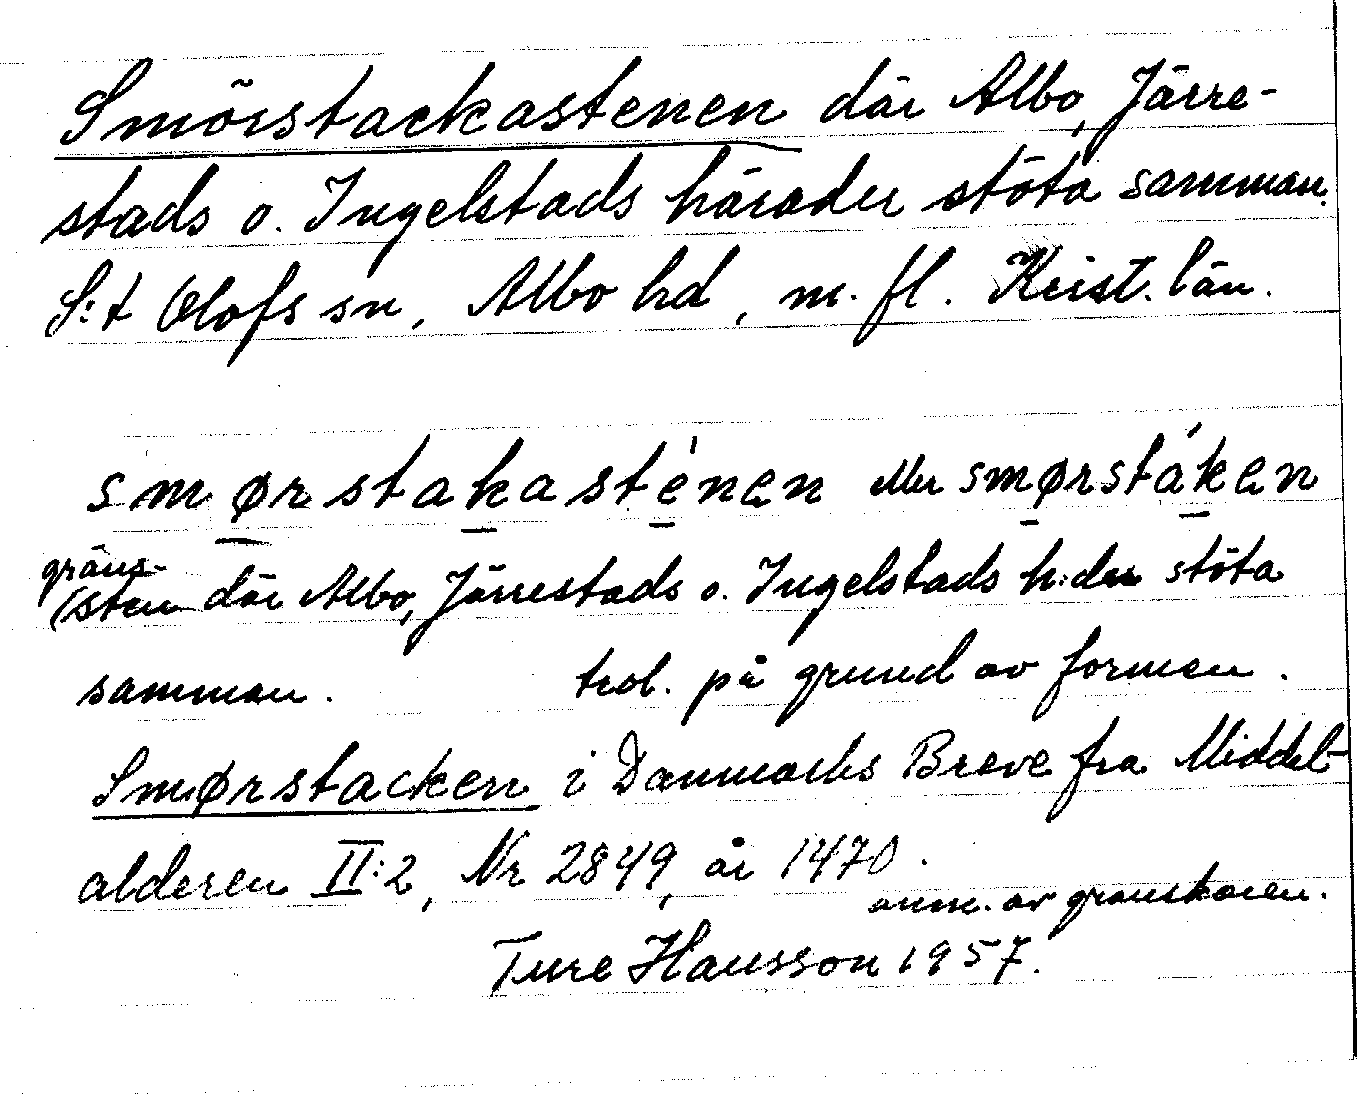 Smörstackastenen där Albo, Järre-
stads o. Ingelstads härader stöta samman.
S:t Olofs sn, Albo hd, m. fl. Krist. län.
smørstakasténen eller smørstáken
gräns-
(sten där Albo, Järrestads o. Ingelstads h:der stöta
samman. trol. på grund av formen.
Smørstacken i Danmarks Breve fra Middel-
alderen II:2, Nr 2849, år 1470.
anm. av granskaren.
Ture Hansson 1957.